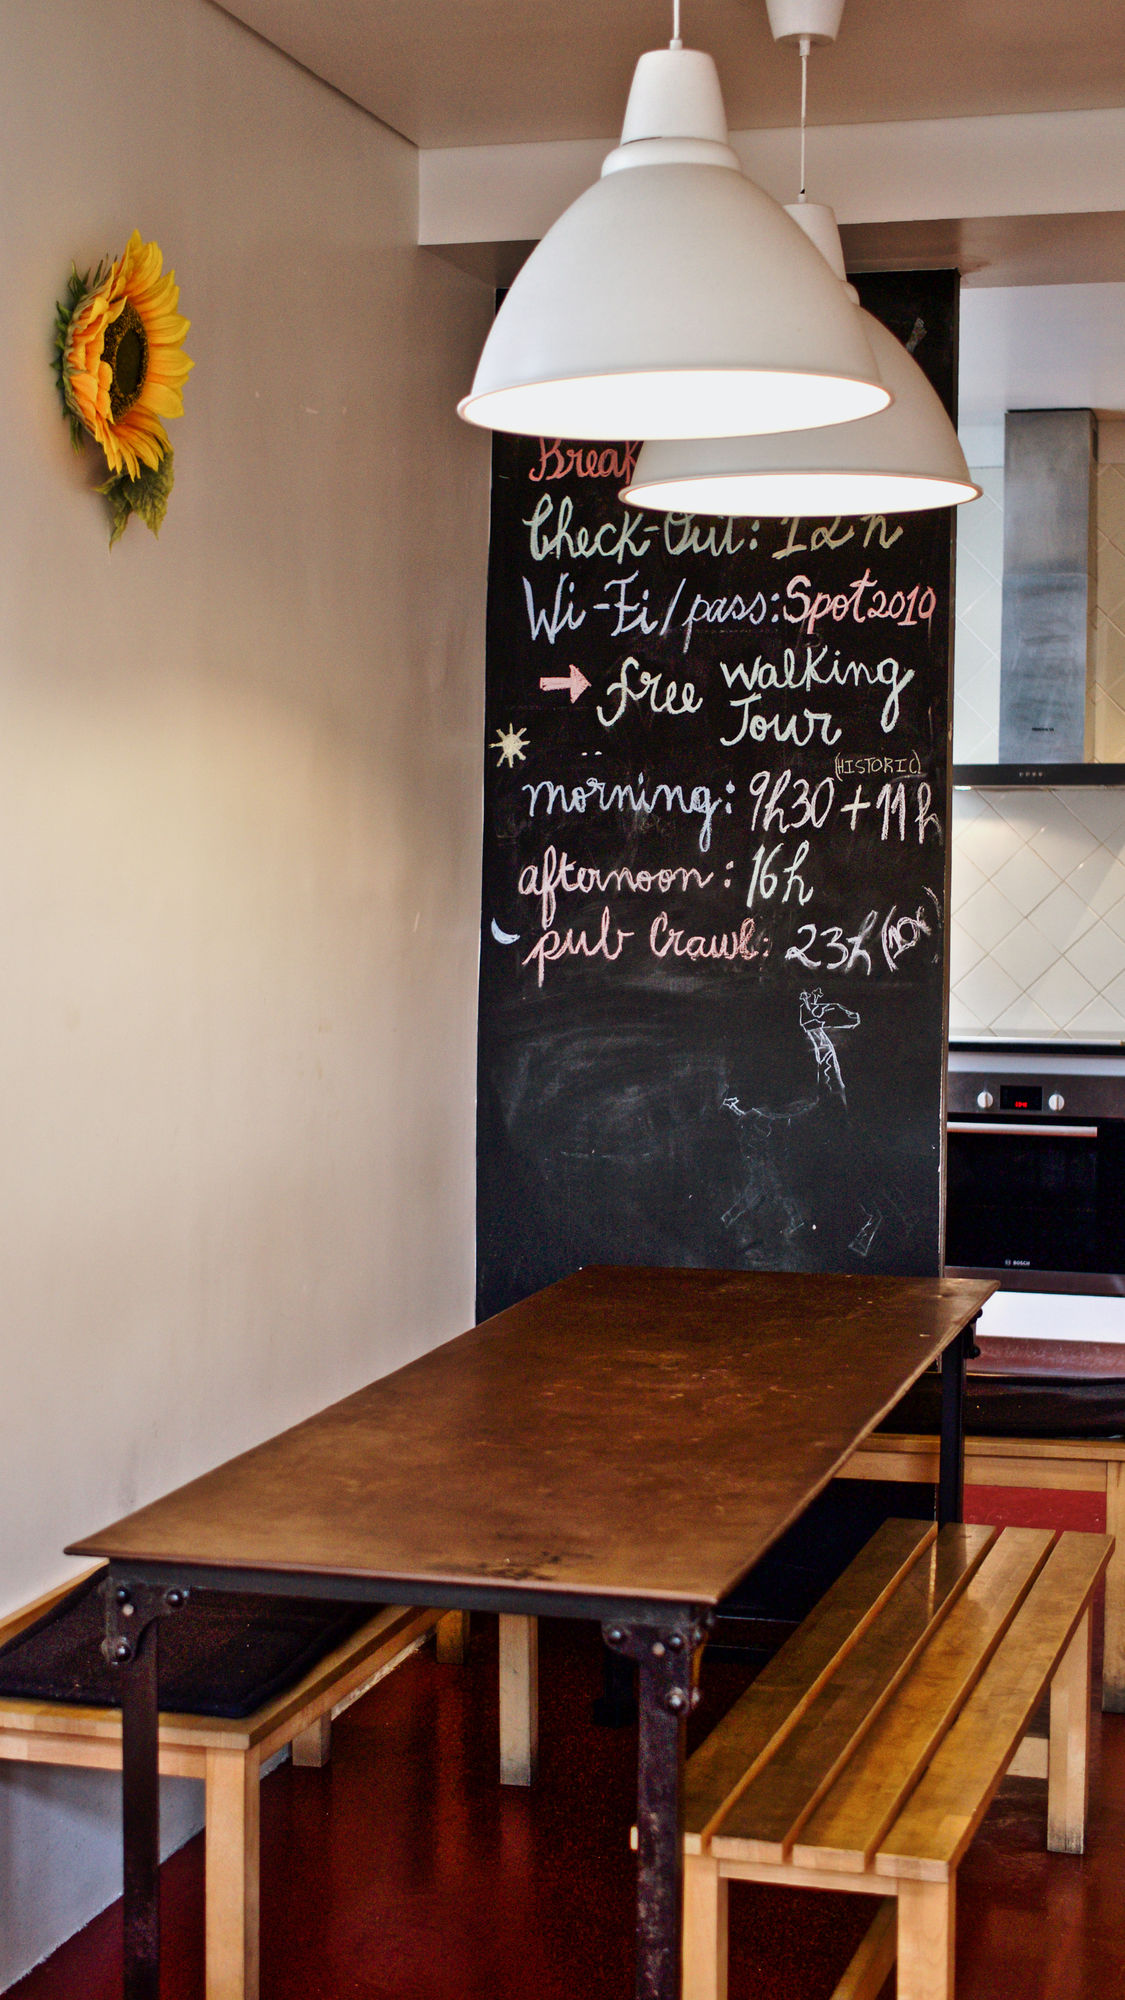 Check-Out: 12h
Wi-Fi/pass: Spot2010
free walking
Tour
(HISTORIC)
morning: 9h30 + 11h
afternoon: 16h
pub Crawl: 23h (10€)
BOSCH